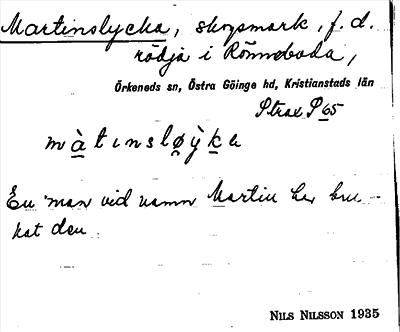 Martinslycka, skogsmark, f.d.
rödja i Rönneboda,
Örkeneds sn, Östra Göinge hd, Kristianstads län
Strax P 65
màtınsløỳka
En man vid namn Martin har bru-
kat den.
NILS NILSSON 1935